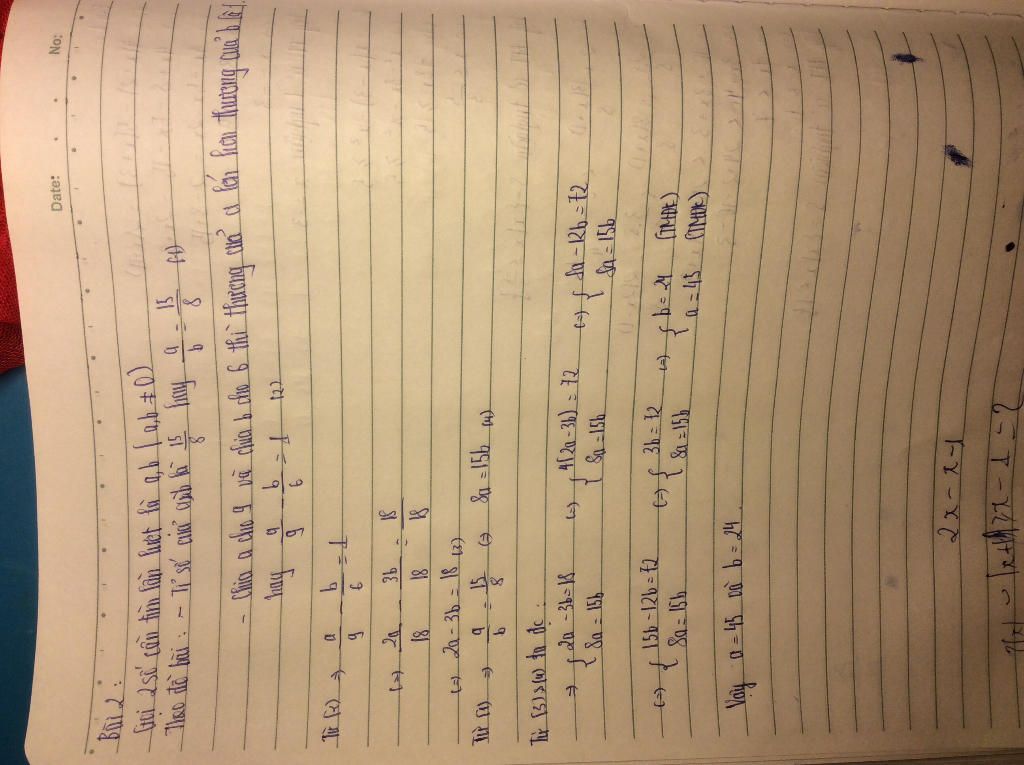 No:
Date:
Bài 2:
Gọi 2 số cần tìm lần lượt là a, b (a,b ≠ 0)
Theo đề bài: - Tỉ số của a,b là 15/8 hay a/b = 15/8 (1)
- Chia a cho 9 và chia b cho 6 thì thương của a lớn hơn thương của b là 1
hay a/9 - b/6 = 1 (2)
Từ (2) => a/9 - b/6 = 1
(=) 2a/18 - 3b/18 = 18/18
(=) 2a - 3b = 18 (3)
Từ (1) => a/b = 15/8 (=) 8a = 15b (4)
Từ (3) & (4) ta đc:
=> { 2a - 3b = 18 (=) { 4(2a - 3b) = 72 (=) { 8a - 12b = 72
8a = 15b 8a = 15b 8a = 15b
(=) { 15b - 12b = 72 (=) { 3b = 72 (=) { b = 24 (TMĐK)
8a = 15b 8a = 15b a = 45 (TMĐK)
Vậy a = 45 và b = 24.
2x - x - 1